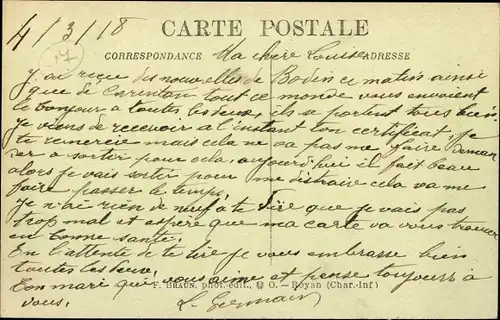 4/3/18
CARTE POSTALE
17
CORRESPONDANCE
ADRESSE
Ma chère Louise
J'ai reçue des nouvelles de Bodin ce matin ainsi
que de Carentan tout ce monde vous envoient
le bonjour a toutes les deux, ils se portent tous bien.
Je viens de recevoir a l'instant ton certificat, je
te remercie mais cela ne va pas me faire deman
der a sortir pour cela, aujourd'hui il fait beau
alors je vais sortir pour me distraire cela va me
faire passer le temps.
Je n'ai rien de neuf a te dire que je vais pas
trop mal et espère que ma carte va vous trouver
en bonne santé.
En l'attente de te lire je vous embrasse bien
toutes les deux.
Ton mari qui vous aime et pense toujours à
vous.
L. Germain
F. BRAUN, phot. édit., O. - Royan (Char.-Inf)